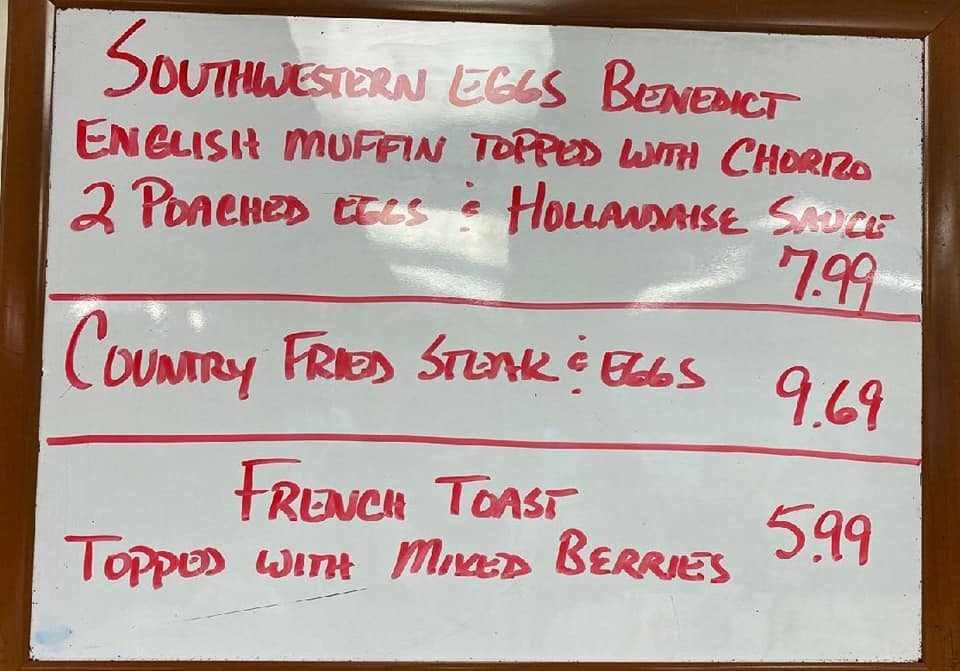 SOUTHWESTERN EGGS BENEDICT
ENGLISH MUFFIN TOPPED WITH CHORIZO
2 POACHED EGGS & HOLLANDAISE SAUCE
7.99
COUNTRY FRIED STEAK & EGGS 9.69
FRENCH TOAST 5.99
TOPPED WITH MIXED BERRIES